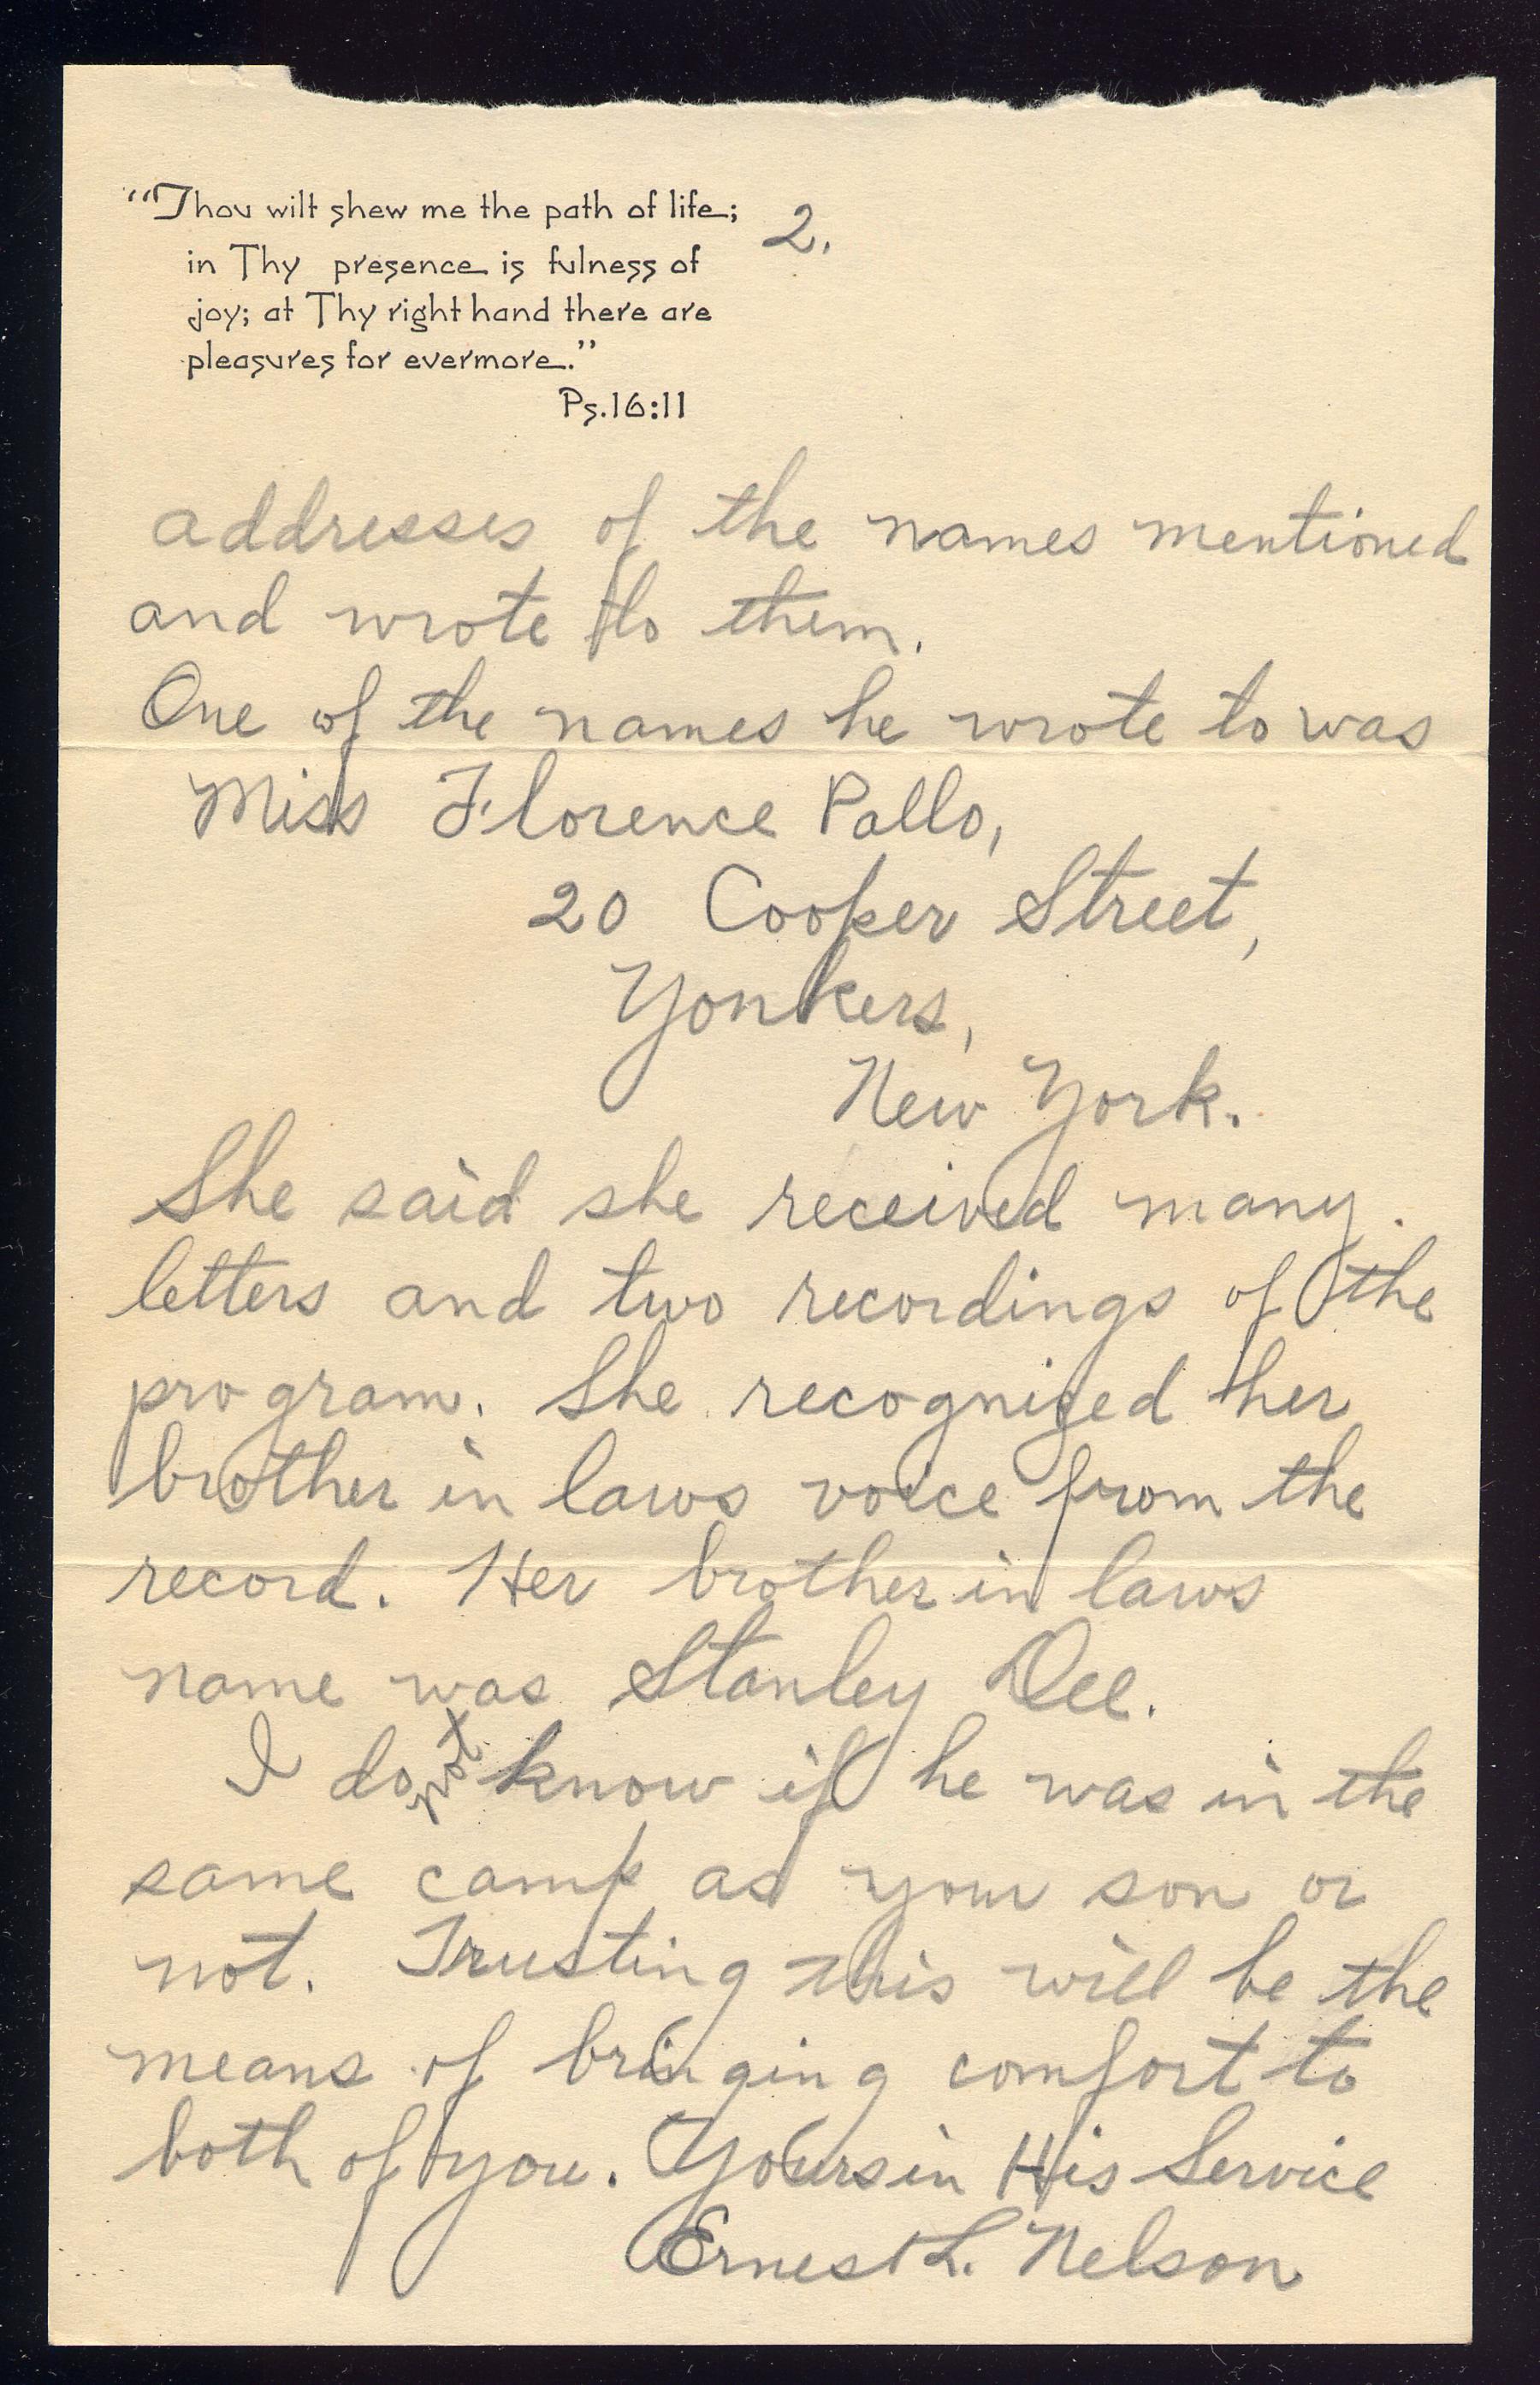 “Thou wilt shew me the path of life; 2.
in Thy presence is fulness of
joy; at Thy right hand there are
pleasures for evermore.”
Ps.16:11
addresses of the names mentioned
and wrote to them.
One of the names he wrote to was
Miss Florence Pallo,
20 Cooper Street,
Yonkers,
New York.
She said she received many
letters and two recordings of the
program. She recognized her
brother in laws voice from the
record. Her brother in laws
name was Stanley Dee.
I do not know if he was in the
same camp as your son or
not. Trusting this will be the
means of bringing comfort to
both of you. Yours in His Service
Ernest L. Nelson